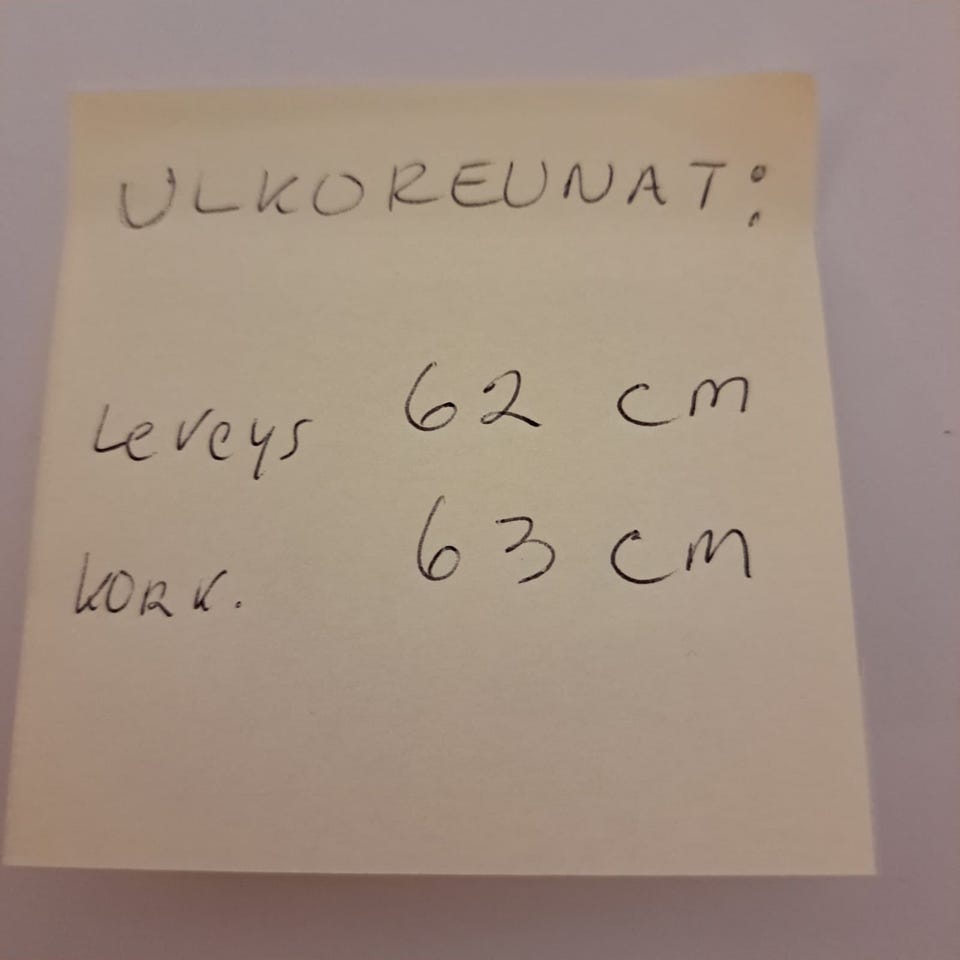 ULKOREUNAT:
Leveys 62 cm
KORK. 63 cm